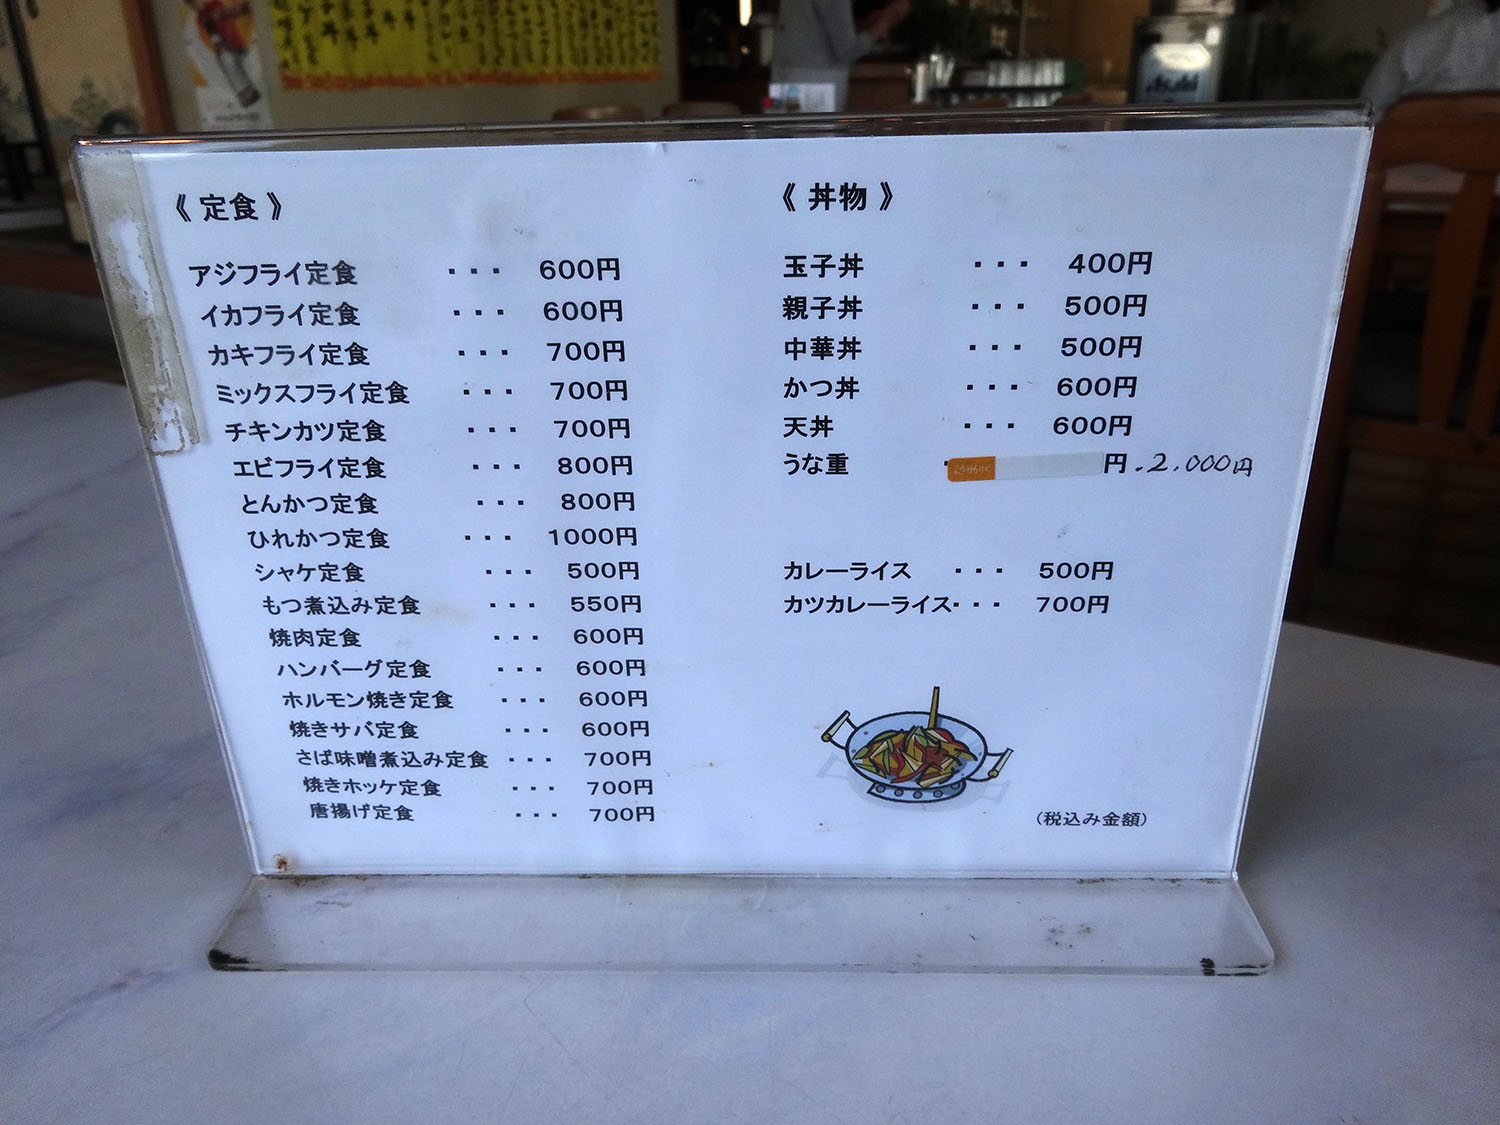 《 定食 》
アジフライ定食 ・・・ 600円
イカフライ定食 ・・・ 600円
カキフライ定食 ・・・ 700円
ミックスフライ定食 ・・・ 700円
チキンカツ定食 ・・・ 700円
エビフライ定食 ・・・ 800円
とんかつ定食 ・・・ 800円
ひれかつ定食 ・・・ 1000円
シャケ定食 ・・・ 500円
もつ煮込み定食 ・・・ 550円
焼肉定食 ・・・ 600円
ハンバーグ定食 ・・・ 600円
ホルモン焼き定食 ・・・ 600円
焼きサバ定食 ・・・ 600円
さば味噌煮込み定食 ・・・ 700円
焼きホッケ定食 ・・・ 700円
唐揚げ定食 ・・・ 700円
《 丼物 》
玉子丼 ・・・ 400円
親子丼 ・・・ 500円
中華丼 ・・・ 500円
かつ丼 ・・・ 600円
天丼 ・・・ 600円
うな重 ・ 円.2,000円
カレーライス ・・・ 500円
カツカレーライス・・・ 700円
(税込み金額)
Asahi